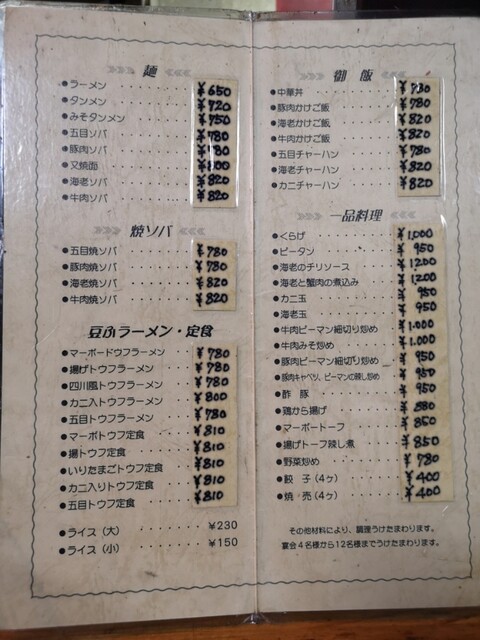 麺
●ラーメン ¥650
●タンメン ¥720
●みそタンメン ¥750
●五目ソバ ¥780
●豚肉ソバ ¥780
●叉焼面 ¥800
●海老ソバ ¥820
●牛肉ソバ ¥820
焼ソバ
●五目焼ソバ ¥780
●豚肉焼ソバ ¥780
●海老焼ソバ ¥820
●牛肉焼ソバ ¥820
豆ふラーメン・定食
●マーボードウフラーメン ¥780
●揚げトウフラーメン ¥780
●四川風トウフラーメン ¥780
●カニ入トウフラーメン ¥800
●五目トウフラーメン ¥780
●マーボトウフ定食 ¥810
●揚トウフ定食 ¥810
●いりたまごトウフ定食 ¥810
●カニ入りトウフ定食 ¥810
●五目トウフ定食 ¥810
●ライス(大) ¥230
●ライス(小) ¥150
御飯
●中華丼
●豚肉かけご飯 ¥780
●海老かけご飯 ¥820
●牛肉かけご飯 ¥820
●五目チャーハン ¥780
●海老チャーハン ¥820
●カニチャーハン ¥820
一品料理
●くらげ ¥1,000
●ピータン ¥950
●海老のチリソース ¥1200
●海老と蟹肉の煮込み ¥1200
●カニ玉 ¥950
●海老玉 ¥950
●牛肉ピーマン細切り炒め ¥1,000
●牛肉みそ炒め ¥1,000
●豚肉ピーマン細切り炒め ¥950
●豚肉キャベツ、ピーマンの辣し炒め ¥950
●酢豚 ¥950
●鶏から揚げ ¥880
●マーボートーフ ¥850
●揚げトーフ辣し煮 ¥850
●野菜炒め ¥780
●餃子(4ヶ) ¥400
●焼売(4ヶ) ¥400
その他材料により、調理うけたまわります。
宴会4名様から12名様までうけたまわります。